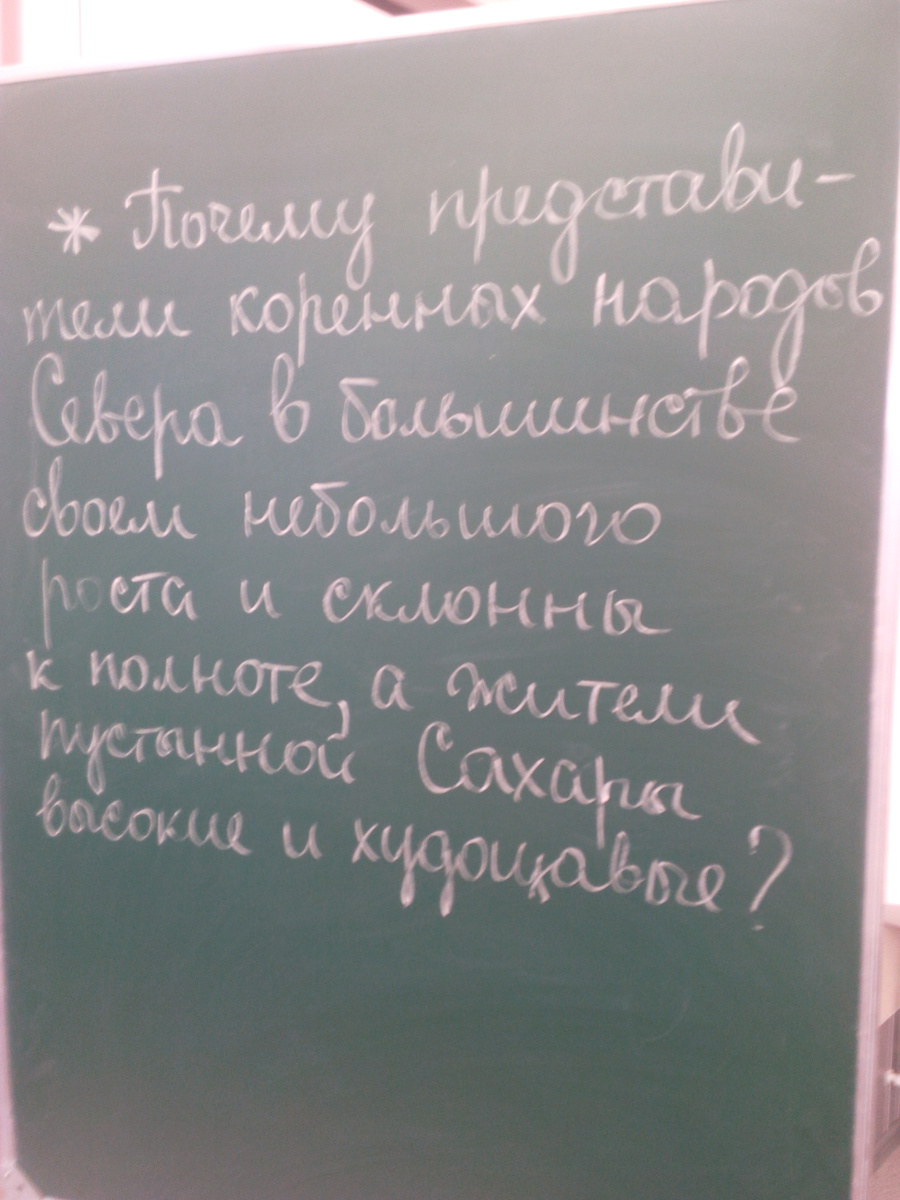 * Почему представи-
тели коренных народов
Севера в большинстве
своем небольшого
роста и склонны
к полноте, а жители
пустынной Сахары
высокие и худощавые?